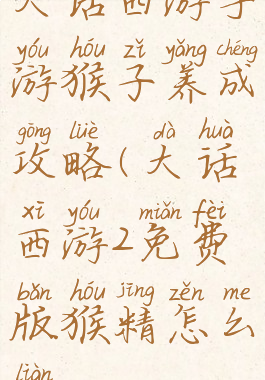 大话西游手
yóu hóu zǐ yǎng chéng
游猴子养成
gōng lüè dà huà
攻略(大话
xī yóu miǎn fèi
西游2免费
bǎn hóu jīng zěn me
版猴精怎么
liàn